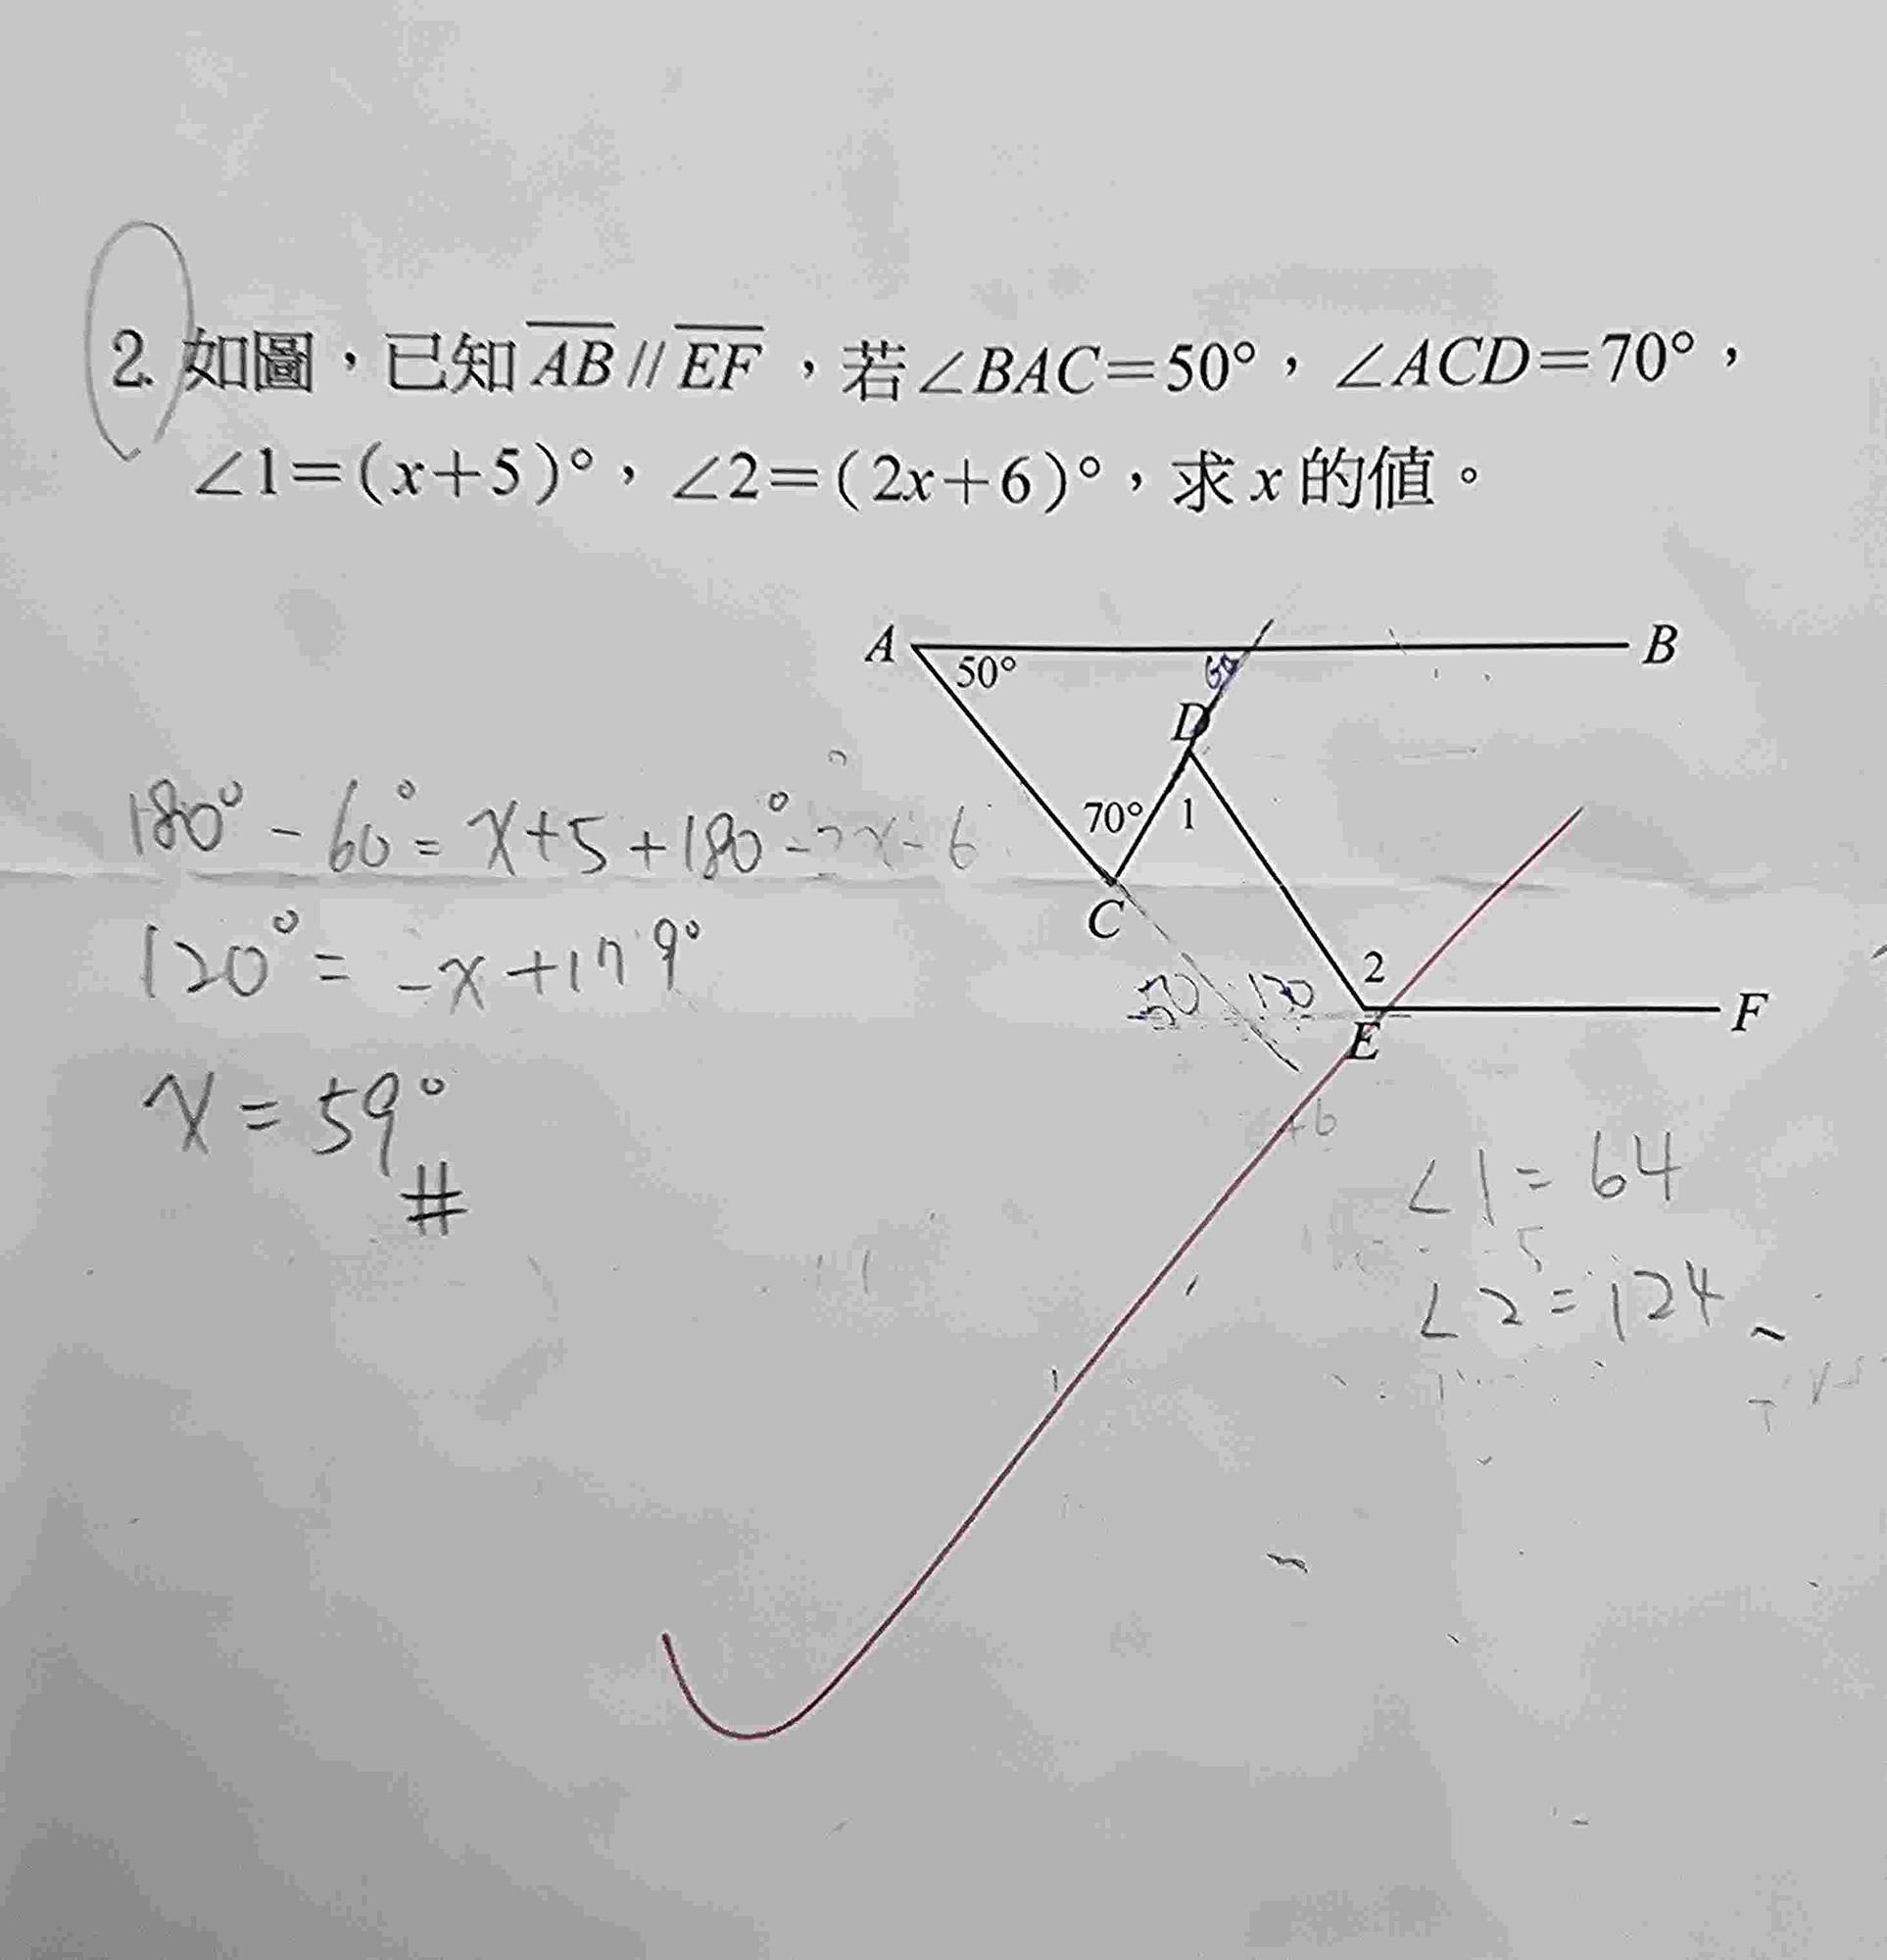 2. 如圖，已知 AB // EF ，若∠BAC=50°，∠ACD=70°，
∠1=(x+5)°，∠2=(2x+6)°，求 x 的值。
A
50°
B
60
D
70°
1
C
2
E
F
50
130
180° - 60° = x+5+180° -2x-6
120° = -x+179°
x = 59°
#
+6
∠1 = 64
∠2 = 124